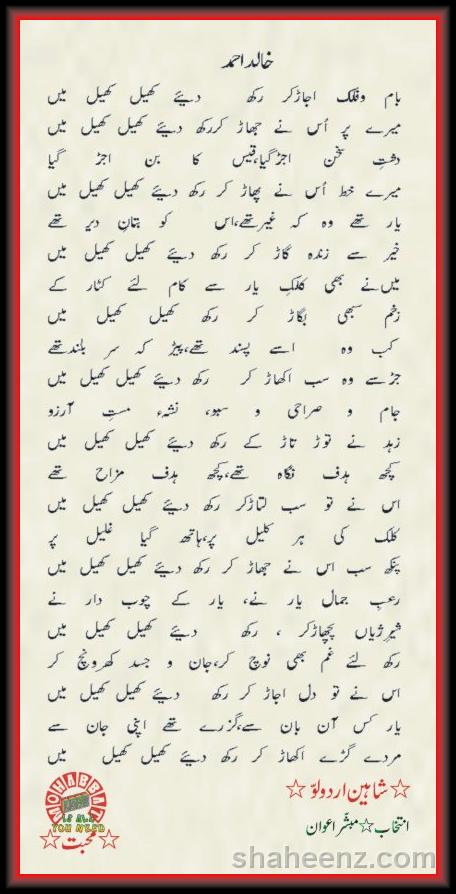 خالد احمد
بام و فلک اجاڑ کر رکھ دیئے کھیل کھیل میں
میرے پر اُس نے جھاڑ کر رکھ دیئے کھیل کھیل میں
دشتِ سخن اجڑ گیا، قیس کا بن اجڑ گیا
میرے خط اُس نے پھاڑ کر رکھ دیئے کھیل کھیل میں
یار تھے وہ کہ غیر تھے، اس کو بتانِ دیر تھے
خیر سے زندہ گاڑ کر رکھ دیئے کھیل کھیل میں
میں نے بھی کلکِ یار سے کام لئے کٹار کے
زخم سبھی بگاڑ کر رکھ کھیل کھیل میں
کب وہ اسے پسند تھے، پیڑ کہ سر بلند تھے
جڑ سے وہ سب اکھاڑ کر رکھ دیئے کھیل کھیل میں
جام و صراحی و سبو، نشہء مستِ آرزو
زہد نے توڑ تاڑ کے رکھ دیئے کھیل کھیل میں
کچھ ہدف نگاہ تھے، کچھ ہدف مزاح تھے
اس نے تو سب لتاڑ کر رکھ دیئے کھیل کھیل میں
کلک کی ہر کلیل پر، ہاتھ گیا غلیل پر
پنکھ سب اس نے جھاڑ کر رکھ دیئے کھیل کھیل میں
رعبِ جمال یار نے، یار کے چوب دار نے
شیرِ ژیاں پچھاڑ کر ، رکھ دیئے کھیل کھیل میں
رکھ لئے غم بھی نوچ کر، جان و جسد کھرونچ کر
اس نے تو دل اجاڑ کر رکھ دیئے کھیل کھیل میں
یار کس آن بان سے، گزرے تھے اپنی جان سے
مردے گڑے اکھاڑ کر رکھ دیئے کھیل کھیل میں
☆شاہین اردو لوّ☆
انتخاب☆مبشر اعوان
MOHABBAT
IS ALL
YOU NEED
☆محبت☆
shaheenz.com